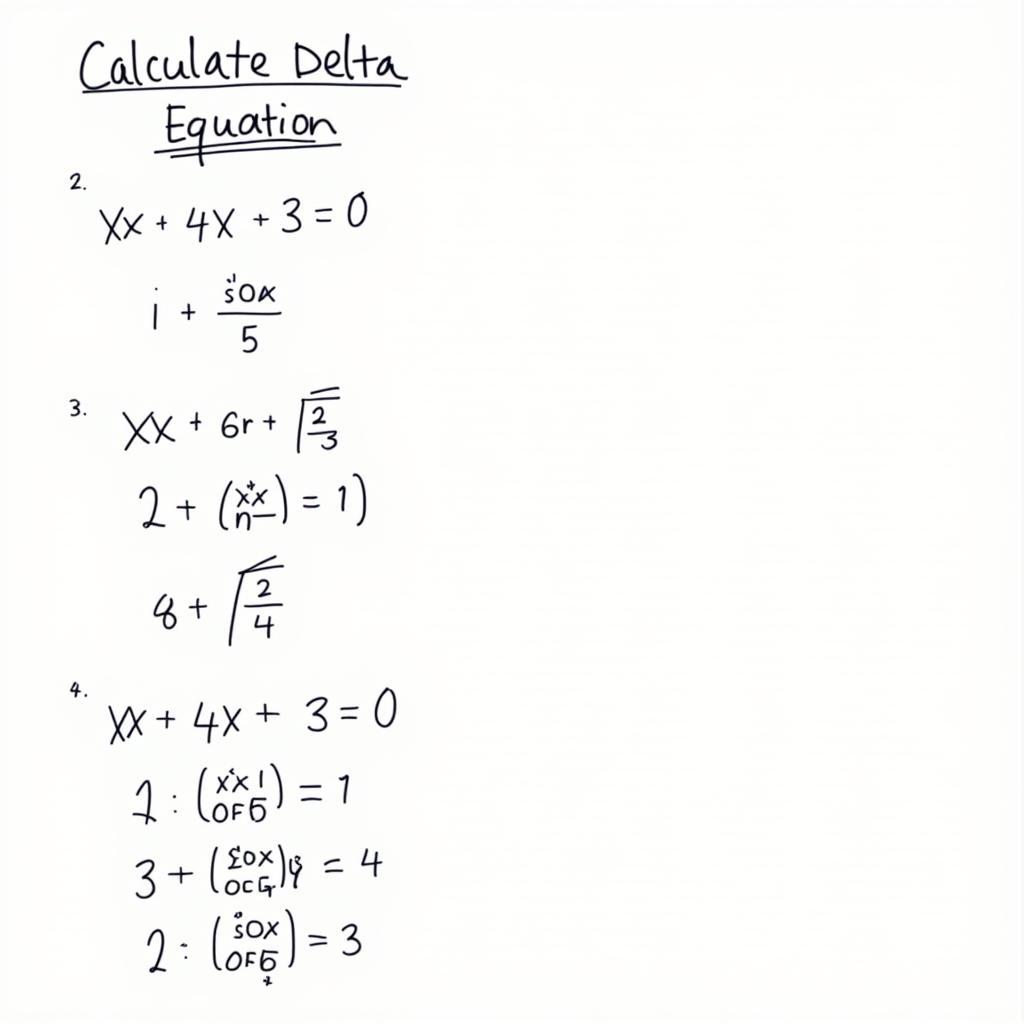 Calculate Delta
Equation
2.
Xx + 4X + 3 = 0
i + sOx / 5
3.
XX + 6r + √(2/3)
2 + (x x n) = 1)
8 + √(2/4)
4.
XX + 4X + 3 = 0
2 : (x x 1 OF5) = 1
3 + (ΣOX OCG) = 4
2 : (sOX OF5) = 3